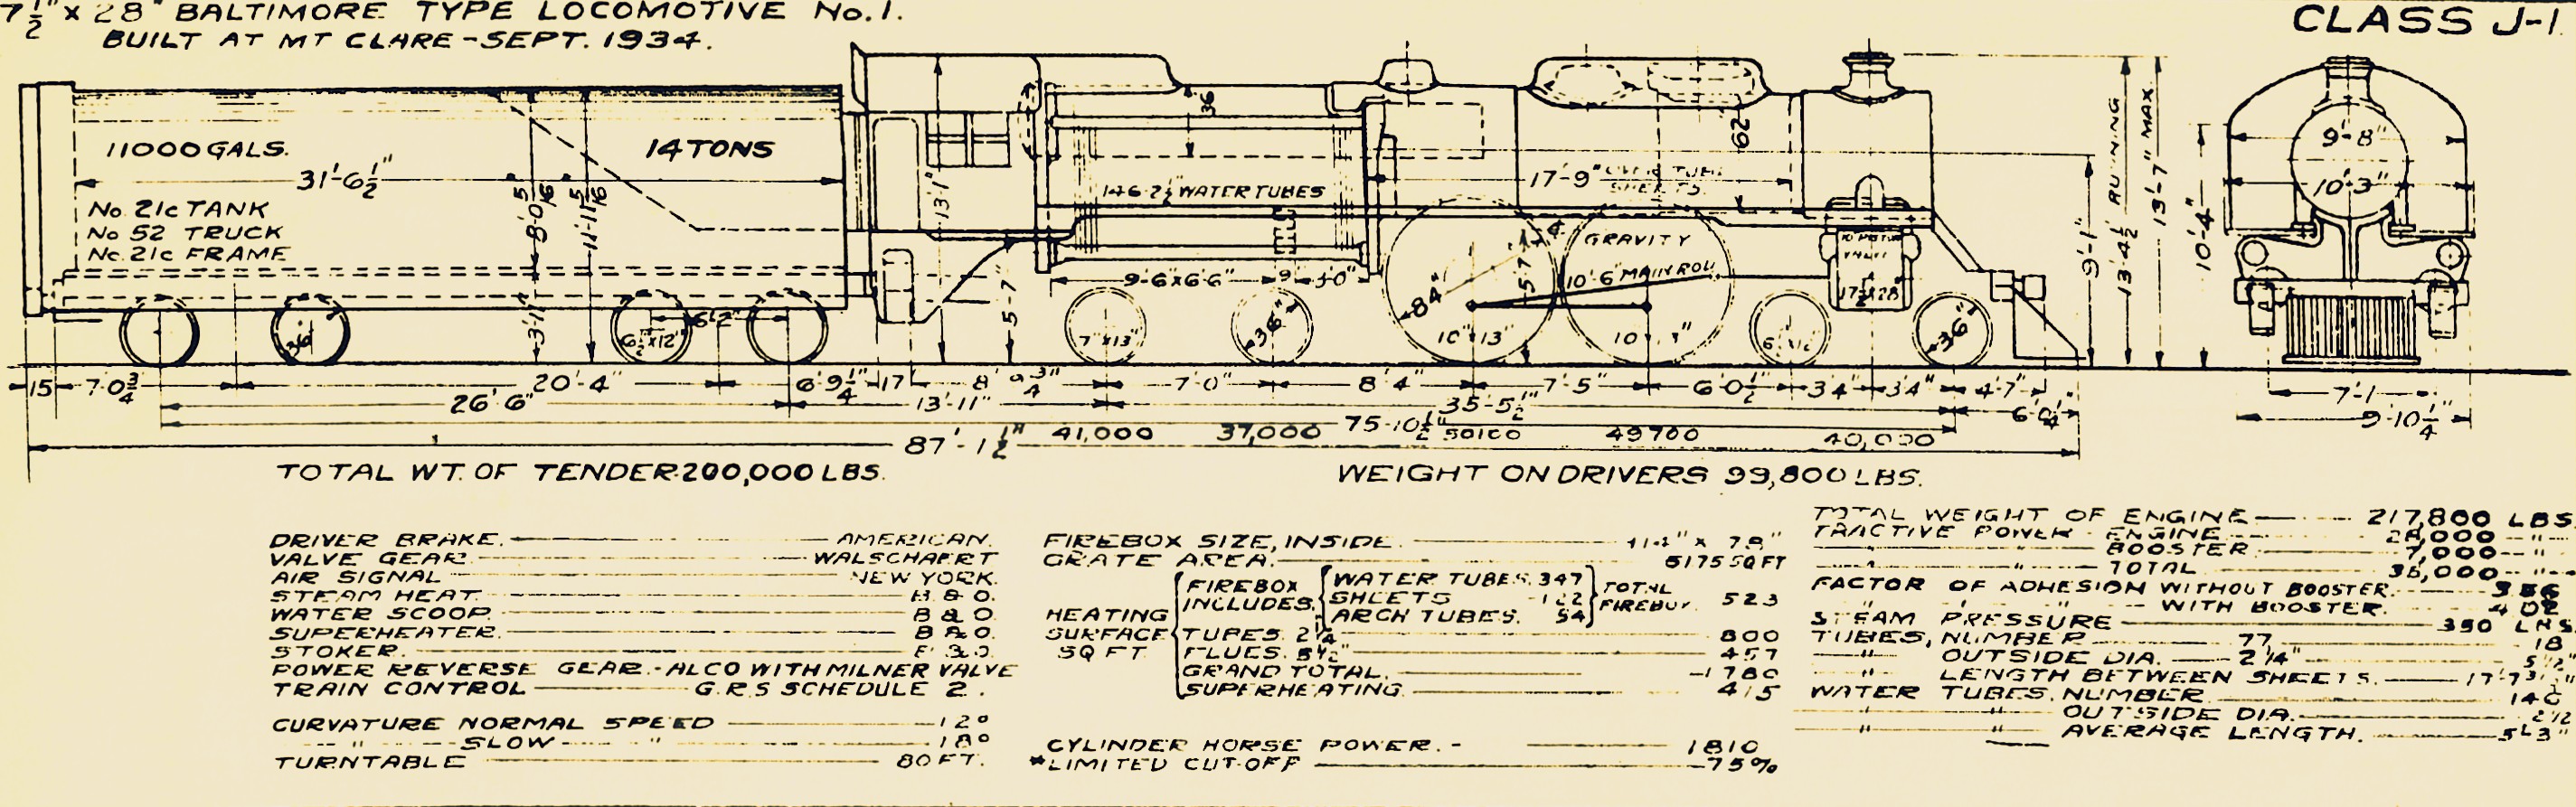 7 1/2" x 28" BALTIMORE TYPE LOCOMOTIVE No. 1.
BUILT AT MT CLARE - SEPT. 1934.
CLASS J-1
11000 GALS.
14 TONS
31'-6 1/2"
No. 21c TANK
No 52 TRUCK
No. 21c FRAME
8'-0 5/16"
11'-11 5/16"
3'-11"
13'-1"
36
146-2 1/2" WATER TUBES
17'-9" OVER TUBE SHEETS
62
GRAVITY
10'-6" MAIN ROD
9'-6 x 6'-6"
5'-7"
5'-7"
84"
17 1/2 x 28"
36"
6'-2"
6 1/2" x 12"
36"
7" x 13"
36"
10" x 13"
9'-1"
13'-4 1/2" RUNNING
13'-7" MAX.
10'-4"
9'-8"
10'-3"
15 7'-0 3/4" 20'-4" 6'-9 1/4" 17 8'-9 3/4" 7'-0" 8'-4" 7'-5" 6'-0 1/2" 3'4" 3'4" 4'-7"
26'6" 13'-11" 35'-5 1/2"
75'-10 1/2"
87'-1 1/2"
7'-1
9'-10 1/4"
41,000 37,000 50100 49700 40,000
TOTAL WT. OF TENDER 200,000 LBS.
WEIGHT ON DRIVERS 99,800 LBS.
DRIVER BRAKE. AMERICAN.
VALVE GEAR. WALSCHAERT
AIR SIGNAL NEW YORK.
STEAM HEAT. B & O.
WATER SCOOP. B & O
SUPERHEATER. B & O.
STOKER.
POWER REVERSE GEAR. - ALCO WITH MILNER VALVE
TRAIN CONTROL G.R.S SCHEDULE 2.
CURVATURE NORMAL SPEED 12°
" SLOW " 18°
TURNTABLE 80 FT.
FIREBOX SIZE, INSIDE. x 78"
GRATE AREA. SQ FT
HEATING SURFACE SQ FT
FIREBOX INCLUDES.
WATER TUBES. 347
SHEETS 122
ARCH TUBES. 54
TOTAL FIREBOX. 523
TUBES. 2 1/4" 800
FLUES. 5 1/2" 457
GRAND TOTAL. 1780
SUPERHEATING. 415
CYLINDER HORSE POWER. - 1810
*LIMITED CUT-OFF 75%
TOTAL WEIGHT OF ENGINE 217,800 LBS.
TRACTIVE POWER - ENGINE 28,000 "
" BOOSTER 7,000 "
" TOTAL
FACTOR OF ADHESION WITHOUT BOOSTER.
" WITH BOOSTER. 402
STEAM PRESSURE 350 LBS.
TUBES, NUMBER 77 18
" OUTSIDE DIA. 2 1/4" 5 1/2"
" LENGTH BETWEEN SHEETS.
WATER TUBES. NUMBER. 146
" " OUTSIDE DIA. 2 1/2
" " AVERAGE LENGTH.